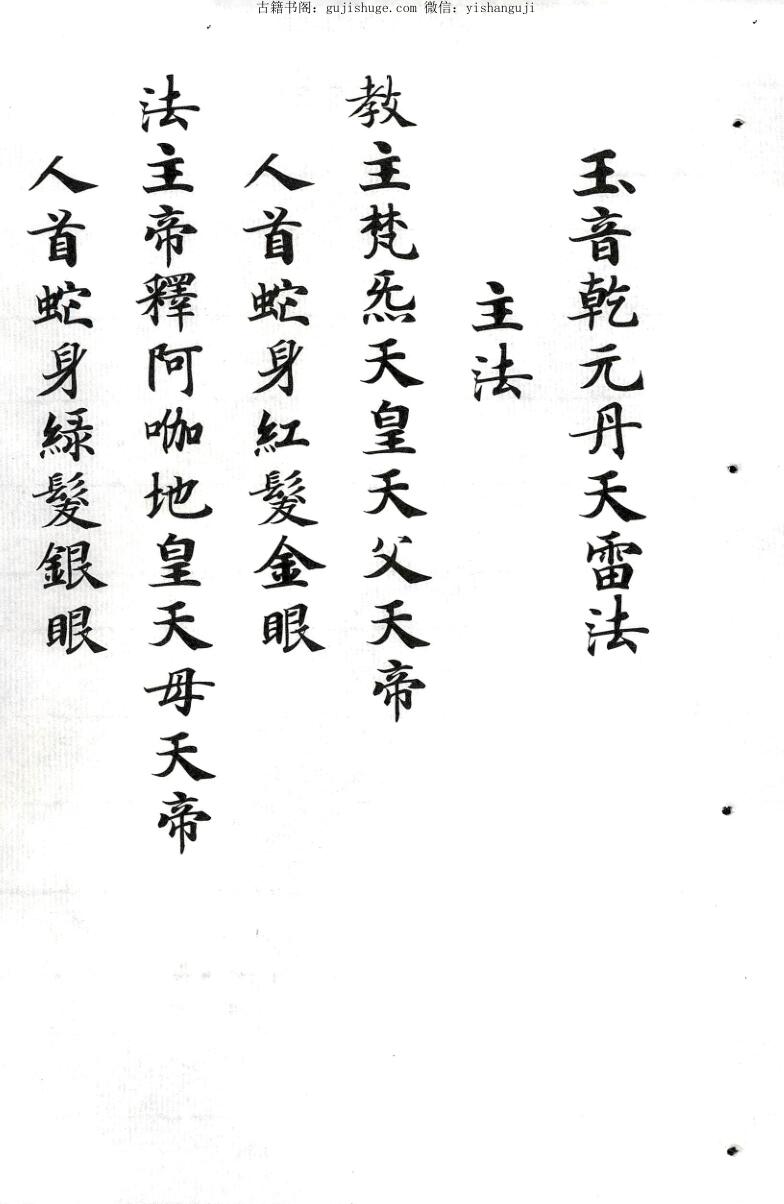 古籍书阁：gujishuge.com 微信：yishanguji
玉音乾元丹天雷法
主法
教主梵炁天皇天父天帝
人首蛇身紅髮金眼
法主帝釋阿咖地皇天母天帝
人首蛇身綠髮銀眼